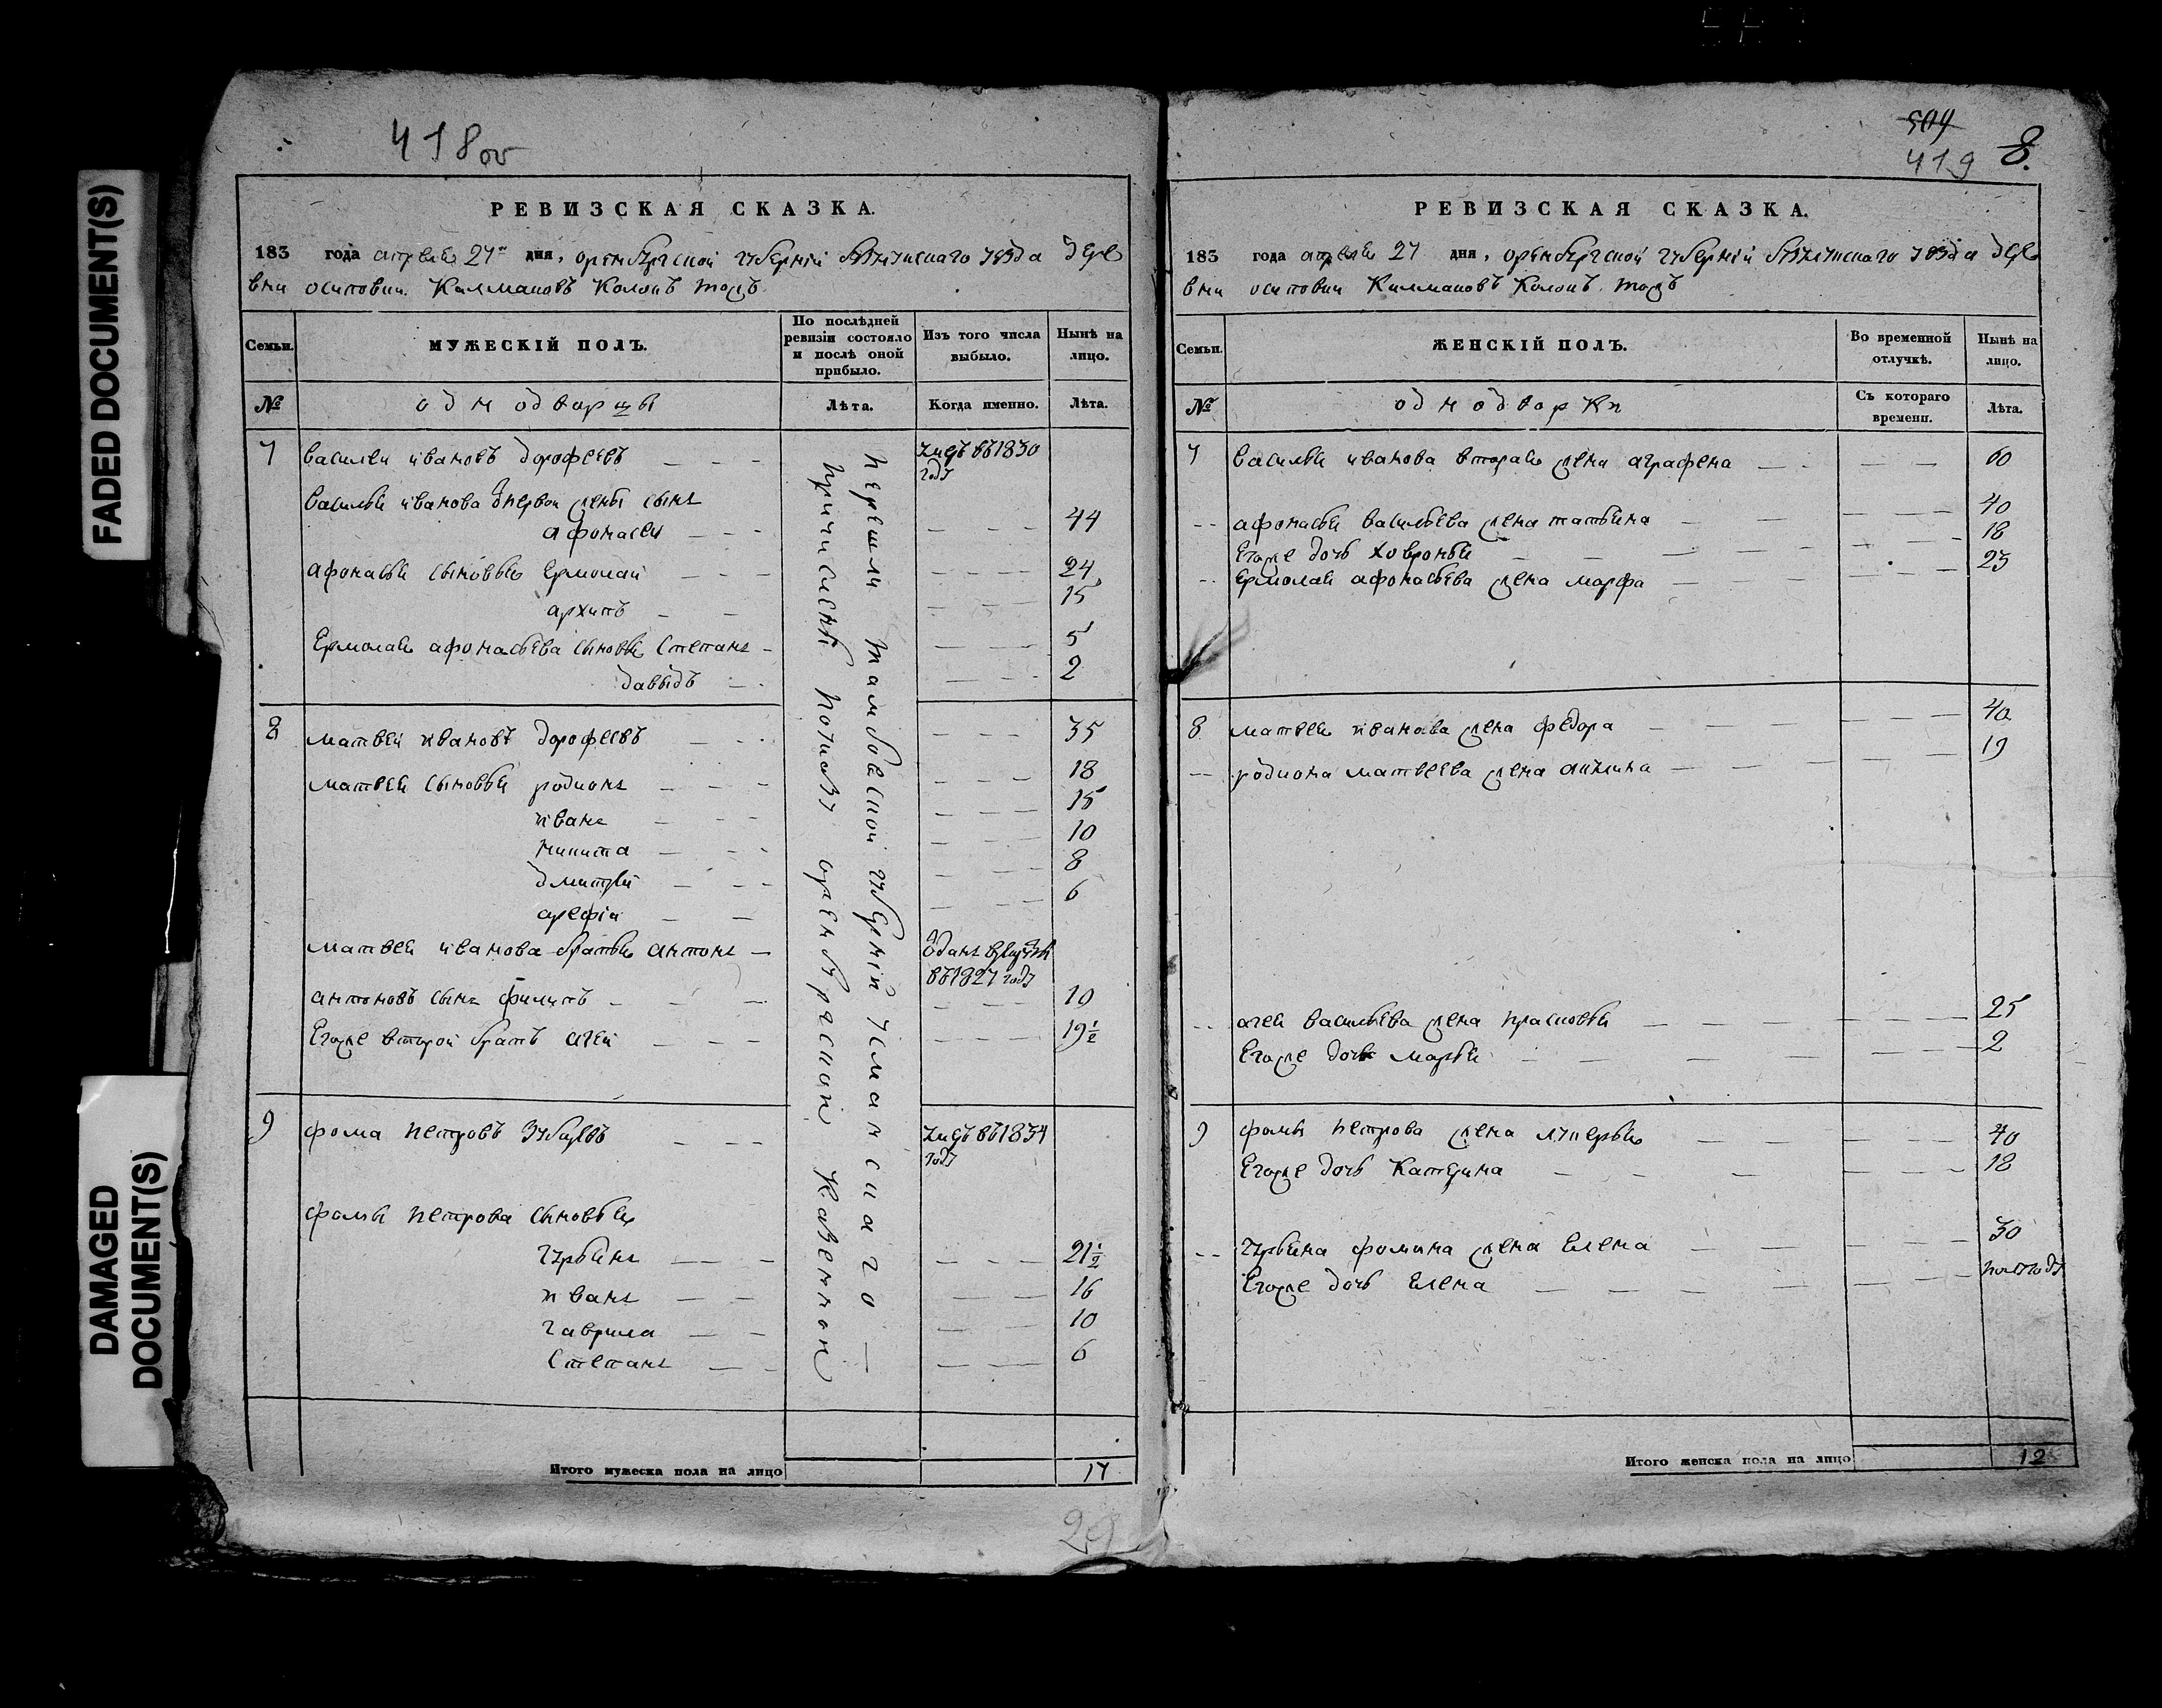 FADED DOCUMENT(S)
DAMAGED
DOCUMENT(S)
418 об
РЕВИЗСКАЯ СКАЗКА.
183 года апреля 27 дня, оренбургской губернiи уезда дере
вни осиповки Колокъ тожъ
Семьи.
МУЖЕСКІЙ ПОЛЪ.
По послѣдней
ревизіи состояло
и послѣ оной
прибыло.
Изъ того числа
выбыло.
Нынѣ на
лицо.
№
однодворцы
Лѣта.
Когда именно.
Лѣта.
перешли тамбовской губернiи усманскаго —
причислены по указу оренбургской казенной
7 василеи ивановъ дорофеевъ умеръ въ 1830
году
василья иванова первои жены сынъ
афонасеи 44
афонасья сыновья ермолаи 24
архипъ 15
Ермолая афонасьева сыновья Степанъ 5
давыдъ 2
8 матвеи ивановъ дорофеевъ 35
матвея сыновья родионъ 18
иванъ 15
никита 10
дмитреи 8
арефiи 6
матвея иванова братья антонъ отданъ в рекруты
въ 1827 году
антоновъ сынъ филипъ 10
Егоже второй братъ агеи 19½
9 фома петровъ Зубаревъ умеръ въ 1834
году
фомы петрова сыновья
гурьянъ 21½
иванъ 16
гаврила 10
Степанъ 6
Итого мужеска пола на лицо 17
29
504
419 8.
РЕВИЗСКАЯ СКАЗКА.
183 года апреля 27 дня, оренбургской губернiи уезда дере
вни осиповки Колокъ тожъ
Семьи.
ЖЕНСКІЙ ПОЛЪ.
Во временной
отлучкѣ.
Нынѣ на
лицо.
№
однодворки
Съ котораго
времени.
Лѣта.
7 василья иванова вторая жена аграфена 60
афонасья васильева жена татьяна 40
Егоже дочь ховронья 18
Ермолая афонасьева жена марфа 23
8 матвея иванова жена федора 40
родиона матвеева жена акилина 19
агея васильева жена прасковья 25
Егоже дочь марья 2
9 фомы петрова жена лукерья 40
Егоже дочь Катерина 18
гурьяна фомина жена Елена 30
Егоже дочь Елена полгоду
Итого женска пола на лицо 12